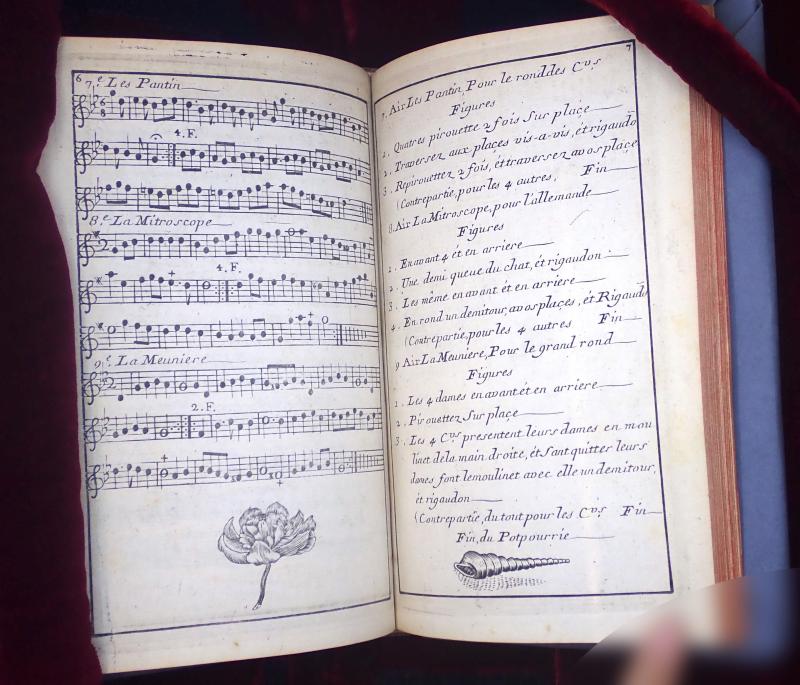 6
7.e Les Pantin
4. F.
8.e La Mitroscope
4. F.
9.e La Meuniere
2. F.
7
7. Air Les Pantin, Pour le rond des C.vs
Figures
1. Quatres pirouette 2 fois Sur plaçe
2. Traversez aux places vis-a-vis, ét rigaudo
3. Repirouettez 2 fois, ét traversez a vos plaçe
(Contrepartie, pour les 4 autres, Fin
8. Air La Mitroscope, pour l'allemande
Figures
1. En avant 4 ét en arriere
2. Une demi queue du chat, ét rigaudon
3. Les même en avant ét en arriere
4. En rond un demi tour, a vos plaçes, ét Rigaudo
(Contrepartie, pour les 4 autres Fin
9 Air La Meuniere, Pour le grand rond
Figures
1. Les 4 dames en avant ét en arriere
2. Pirouettez Sur plaçe
3. Les 4 C.vs presentent leurs dames en mou
linet de la main droite, ét Sant quitter leurs
dames font le moulinet avec elle un demi tour,
ét rigaudon
(Contrepartie, du tout pour les C.vs Fin
Fin, du Potpourrie